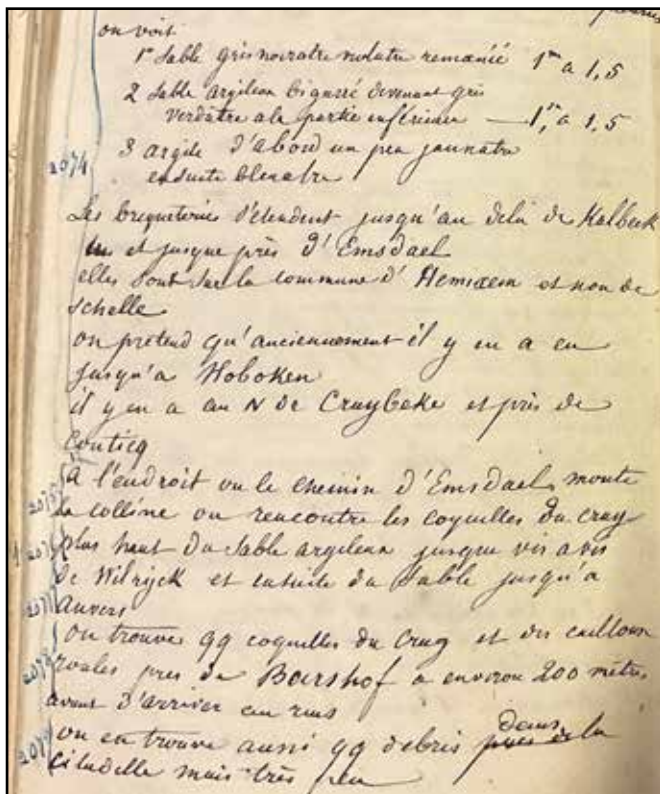 on voit
1° Sable gris noiratre melatre remanié 1m a 1,5
2 Sable argileux bigarré devenant gris
verdâtre a la partie inférieure — 1,m a 1,5
2074
3 argile d'abord un peu jaunatre
ensuite bleuatre
Les briqueteries s'étendent jusqu'au delà de Kalbeek
et jusque près d'Emsdael
elles sont sur la commune d'Hemixem et non de
Schelle
on prétend qu'anciennement il y en a eu
jusqu'a Hoboken
il y en a au N de Cruybeke et près de
Conticq
2075 à l'endroit ou le chemin d'Emsdael monte
la colline on rencontre les coquilles du crag
2076 plus haut du Sable argileux jusque vis a vis
de Wilrijck et ensuite du Sable jusqu'a
2077 Anvers
on trouve qq coquilles du Crag et des cailloux
2078 roulés pres de Boershof a environ 200 mètres
avant d'arriver au
on en trouve aussi qq debris pres de la dans
citadelle mais très peu